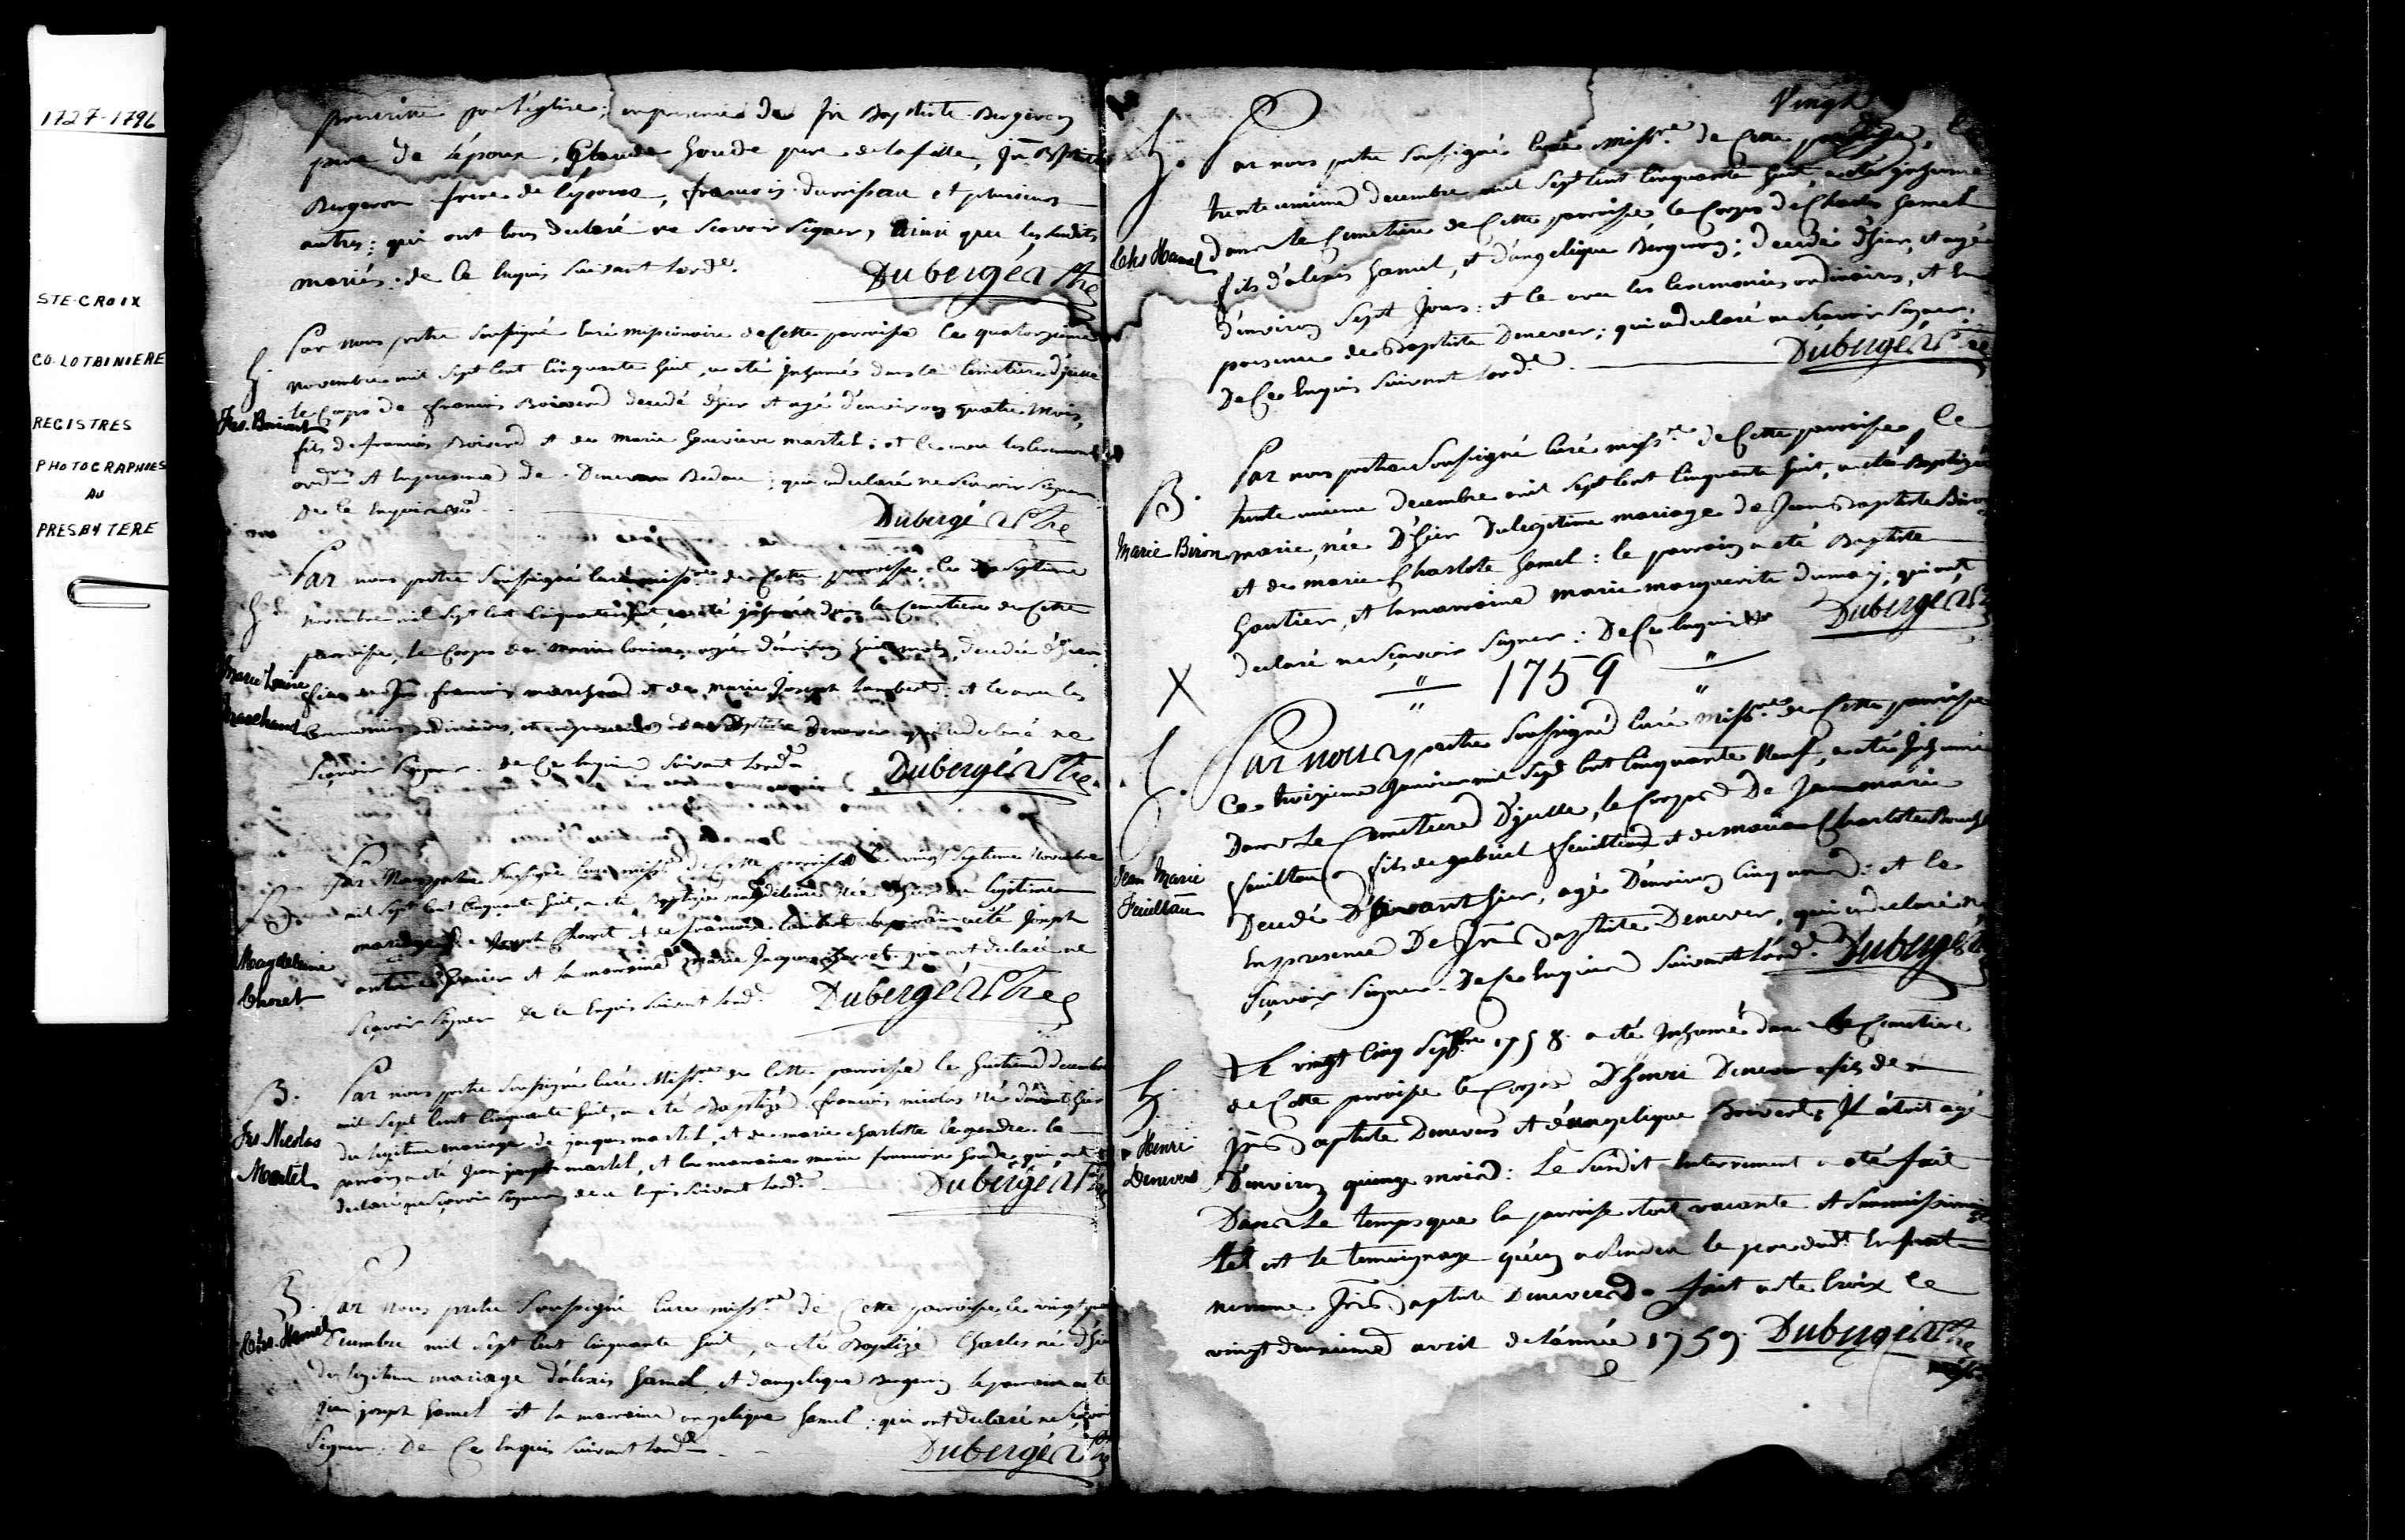 1727-1796
STE-CROIX
CO. LOTBINIERE
REGISTRES
PHOTOGRAPHIES
AU
PRESBYTERE
par l'eglise; en presence de Jn Baptiste Bergeron
pere de l'epoux, Claude houde pere de la fille, Jn Bptiste
Bergeron frere de l'epoux, francois durisseau et plusieurs
autres; qui ont tous declaré ne scavoir signer, ainsi que les susdits
mariés. de ce enquis suivant lord.e
Dubergés Ptre
S. Par nous prêtre soussigné curé missionaire de cette parroisse le quatorzieme
novembre mil sept cent cinquante huit, a eté inhumé dans le cimetiere d'ycelle
le corps de francois Boisverd decedé d'hier et agé d'environ quatre mois,
Frs. Boisvert
fils de francois Boisverd et de marie Genevieve martel; et ce avec les
ord.res et en presence de Bedar; qui a declaré ne scavoir signer
De ce enquis
Dubergé Ptre
Par nous prêtre soussigné curé miss.re de cette parroisse, le dix septieme
S.
novembre mil sept cent cinquante huit, a eté inhumé dans le cimetiere de cette
parroisse, le corps de marie louise, agée d'environ huit mois, decedée d'hier,
Marie Louise
fille de francois marchand et de marie Joseph lambert: et ce avec les
Marchand
ceremonies ordinaires, et en presence de Baptiste Denever qui a declaré ne
scavoir signer. de ce enquis suivant lord.e
Dubergés Ptre.
Par nous prêtre soussigné curé miss.re de cette parroisse le vingt septieme novembre
B.
mil sept cent cinquante huit, a eté Baptisée magdeleine née d'hier du legitime
mariage de Joseph Choret et de francoise lambert. le parrain a eté Joseph
Magdeleine
Choret
antoine et la marraine marie qui ont declaré ne
scavoir signer de ce enquis suivant lord.e
Dubergés Ptre
B. Par nous prêtre soussigné curé Miss.re de cette parroisse le huitieme decembre
mil sept cent cinquante huit, a eté Baptizé francois nicolas né d'avant hier
Frs. Nicolas
Martel
du legitime mariage de jacques martel, et de marie charlotte legendre. le
parrain a eté Jean joseph martel, et la marraine marie francoise houde qui ont
declaré ne scavoir signer de ce enquis suivant lord.e
Dubergés Ptre
B. Par nous prêtre soussigné curé miss.re de cette parroisse le vingt
Chs. Hamel
Decembre mil sept cent cinquante huit, a eté Baptizé Charles né d'hier
du legitime mariage d'alexis hamel, et d'angelique Bergeron le parrain a eté
jean joseph hamel et la marraine angelique hamel: qui ont declaré ne scavoir
signer: De ce enquis suivant lord.e
Dubergés Ptre
Vingt
S. Par nous prêtre soussigné curé miss.re de cette parroisse, le
trente unieme decembre mil sept cent cinquante huit, a eté inhumé
dans le cimetiere de cette parroisse, le corps de Charles hamel
Chs Hamel
fils d'alexis hamel, et d'angelique Bergeron; decedé d'hier, et agé
d'environ sept jours: et ce avec les ceremonies ordinaires, et en
presence de Baptiste Denever; qui a declaré ne scavoir signer;
De ce enquis suivant lord.e
Dubergés Ptre
Par nous prêtre soussigné curé miss.re de cette parroisse, le
B.
trente unieme decembre mil sept cent cinquante huit, a eté Baptizée
Marie Biron
marie, née d'hier du legitime mariage de Jean Baptiste Biron
et de marie Charlote hamel: le parrain a eté Baptiste
Gautier, et la marraine marie marguerite dumay, qui ont
declaré ne scavoir signer: De ce enquis
Dubergés Ptre
X " 1759 "
S. Par nous prêtre soussigné curé miss.re de cette parroisse
ce troizieme janvier mil sept cent cinquante neuf, a eté Inhumé
Dans le cimetiere d'ycelle, le corps de Jean marie
Jean Marie
Feuilteau
feuilteau fils de gabriel feuilteau et de marie Charlotte
Decedé d'avant hier, agé d'environ cinq mois: et ce
en presence de Jn Baptiste Denever, qui a declaré ne
scavoir signer. De ce enquis suivant lord.e
Dubergés
Le vingt cinq sept.bre 1758. a eté Inhumé dans le cimetiere
S.
de cette parroisse le corps d'henri Denever fils de
jn Baptiste Denevers et d'angelique Boisvert; Il étoit agé
Henri
Denevers
D'environ quinze mois: Le susdit enterrement a eté fait
Dans le temps que la parroisse etoit vacante et sans missionaire
tel est le temoignage qu'en a rendu le pere dud.t enfant
nommé Jn Baptiste Denevers. fait a ste Croix le
vingt deuxieme avril de l'année 1759.
Dubergés Ptre
miss.